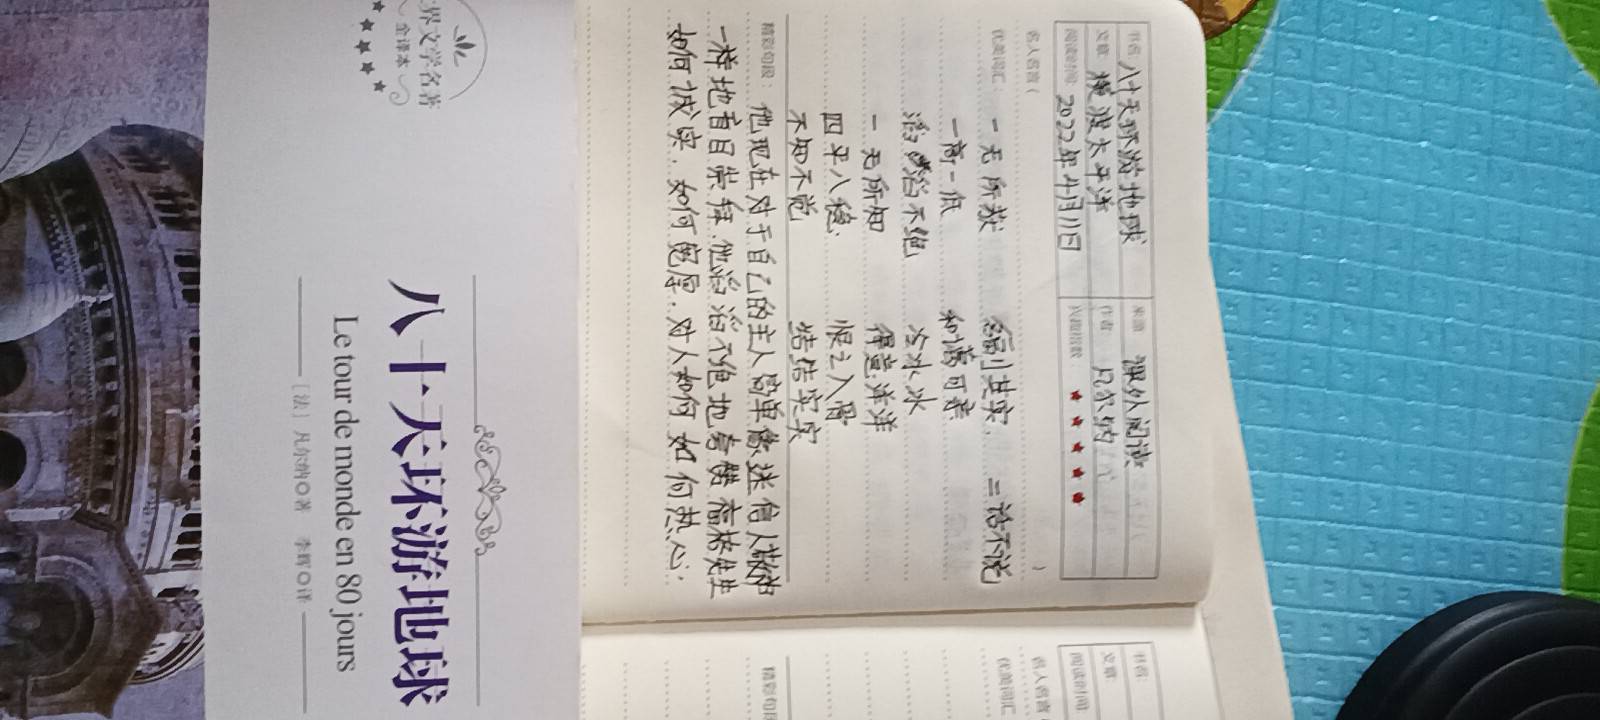 书名 八十天环游地球 来源 课外阅读
文章 横渡太平洋 作者 凡尔纳
阅读时间 2022年4月11日 兴趣指数 ★★★★★
名人名言（ ）
优美词汇： 一无所获 名副其实 二话不说
一高一低 和蔼可亲
滔滔不绝 冷冰冰
一无所知 得意洋洋
四平八稳 恨之入骨
不知不觉 结结实实
精彩句段： 他现在对于自己的主人简单像迷信人敬神
一样地盲目崇拜.他滔滔不绝地夸赞福格先生
如何诚实.如何宽厚.对人如何如何热心.
书名
文章
阅读时间
名人名言（
优美词汇
精彩句段
界文学名著
全译本
★★★★★
八十天环游地球
Le tour de monde en 80 jours
［法］凡尔纳◎著 李辉◎译